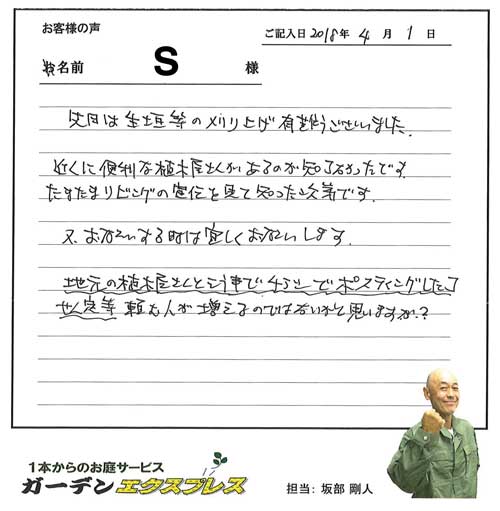 お客様の声
ご記入日 2018年 4月 1日
お名前 S 様
先日は生垣等の刈り上げ有難うございました.
近くに便利な植木屋さんがあるのが知らなかったです.
たまたまリビングの宣伝を見て知った次第です.
又、お願いする時は宜しくお願いします.
地元の植木屋さんという事でチラシでポスティングしたら
せん定等 頼む人が増えるのではないかと思いますが.?
1本からのお庭サービス
ガーデンエクスプレス
担当: 坂部 剛人